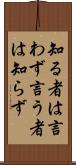 知る者は言
わず言う者
は知らず